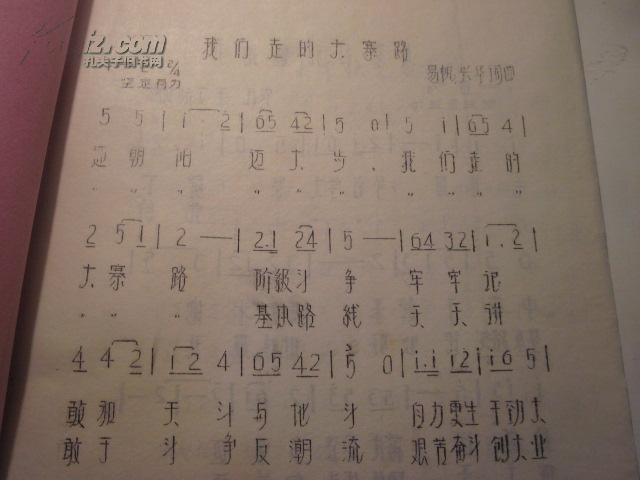 我们走的大寨路
2/4
坚定有力
易帆.张华词曲
5 5 | i 2 | 65 42 | 5 0 | 5 i | 65 4 |
迎朝阳 迈大步, 我们走的
" " " " " " " " " "
2 5 1 | 2 — | 2.1 24 | 5 — | 64 32 | i.2 |
大寨路 阶级斗争 牢牢记
" " " 基本路线 天天讲
4 4 2 | i 2 4 | 65 42 | 5 0 | i.i i2 | i6 5 |
敢和天斗与地斗 自力更生干劲大
敢于斗争反潮流 艰苦奋斗创大业
iz.com
孔夫子旧书网